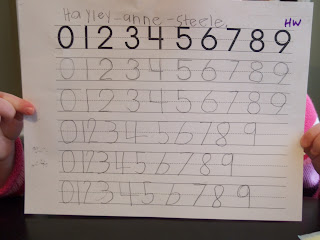 Hayley-anne-steele HW
0123456789
0123456789
0123456789
0123456789
0123456789
0123456789